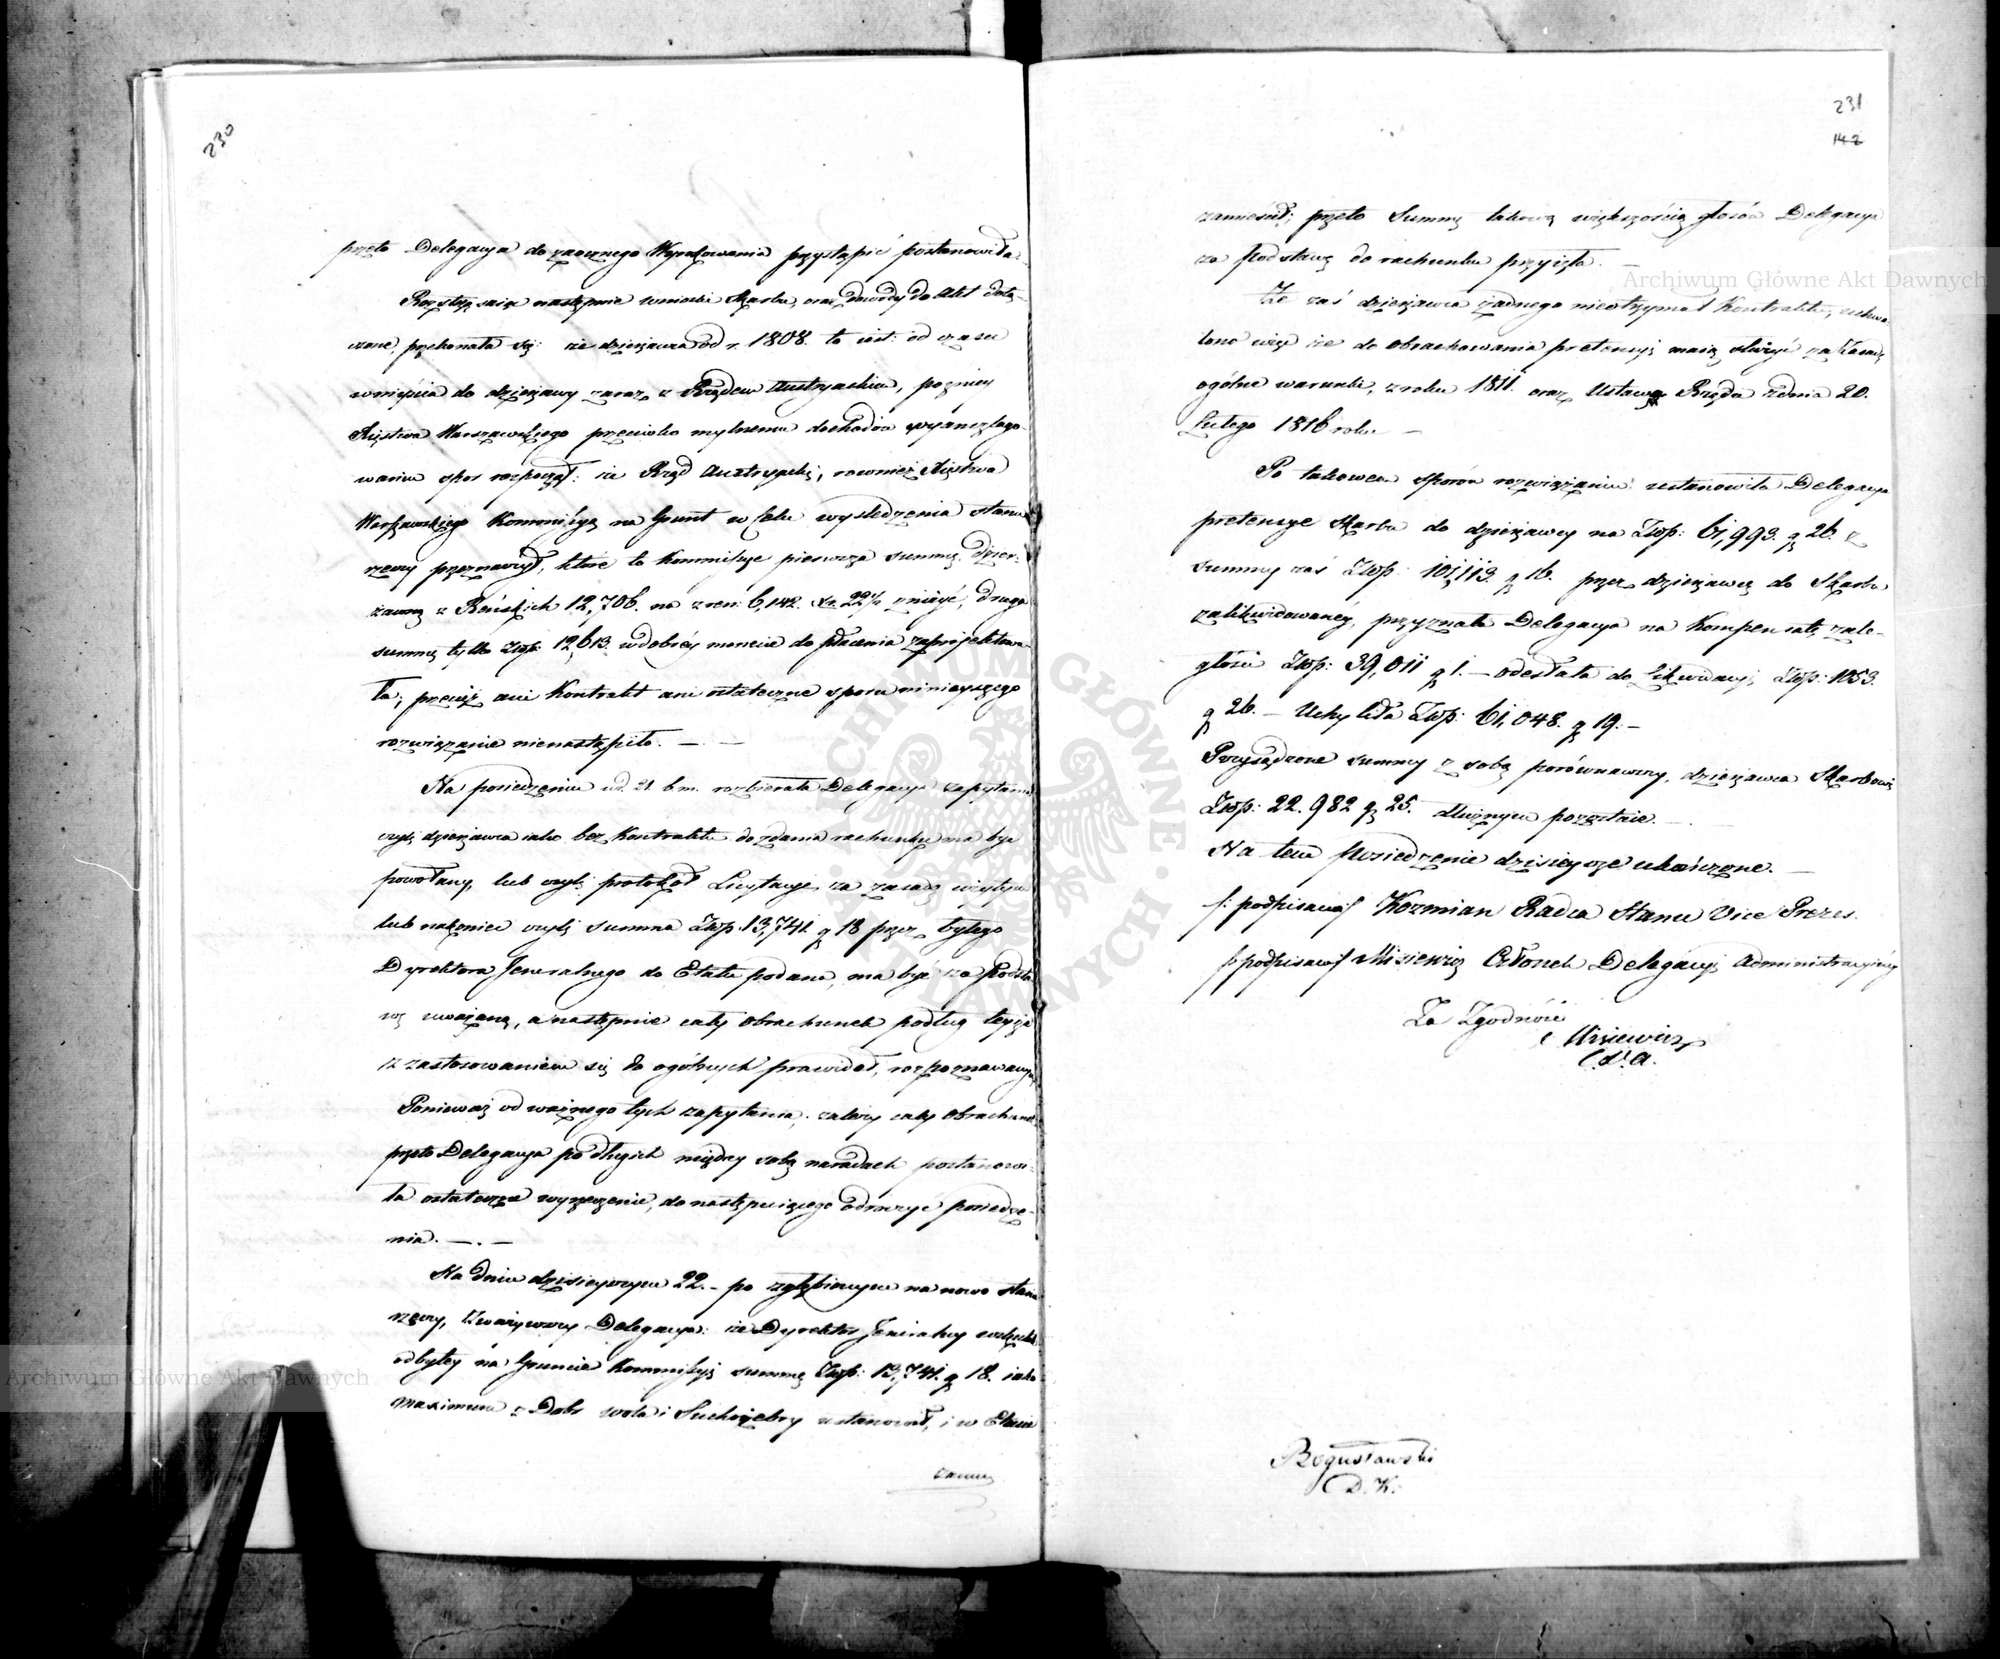 230
przeto Delegacya do zaocznego Wyrokowania przystąpić postanowiła.
Rozstrząsając następnie wnioski Skarbu, oraz dowody do Akt dołą-
czone, przekonała się: że dzierżawca od r. 1808. to iest: od czasu
wniyścia do dzierżawy zaraz z Rządem Austryackim, poźniey
Xięstwa Warszawskiego przeciwko mylnemu dochodów wyanszlago-
waniu spor rozpoczął: że Rząd Austryacki, rownież Xięstwa
Warszawskiego Kommissyą na Grunt w Celu wysledzenia stanu
rzeczy przeznaczył, które to Kommissye pierwsza summę dzier-
żawną z Reńskich 12,706. na zren: 6,142. Xr. 22 1/2 zniżyć, druga
summę tylko Złop: 12,613. w dobréy monecie do płacenia zaproiektowa-
ła; przecież ani Kontrakt ani ostateczne sporu ninieyszego
rozwiązanie nienastąpiło. — —
Na posiedzeniu ud. 21 b. m. rozbierała Delegacya zapytania
czyli dzierżawca iako bez Kontraktu do zdania rachunku ma być
powołany, lub czyli protokół Licytacyi za zasadę wzięty
lub nakoniec czyli summa Złop. 13,741 g 18 przez byłego
Dyrektora Jeneralnego do Etatu podana, ma być za Podsta-
wę uważaną, a następnie cały Obrachunek podług teyże
z zastosowaniem się do ogólnych prawideł, rozpoznawany
Ponieważ od ważnego tych zapytania, zależy cały Obrachunek
przeto Delegacya po długich między sobą naradach postanowi-
ła ostateczne wyrzeczenie, do następuiącego odroczyć posiedze-
nia. — . —
Na dniu dzisieyszym 22. – po zgłębionym na nowo stanie
rzeczy, Zważywszy Delegacya: że Dyrektor Jeneralny wskutek
odbytey na Gruncie Kommissyi summę Złop: 13,741. g 18. iako
Maximum z Dobr Wola i Suchożebry ustanowił, i w Etacie
zamie
231
142
zamieścił; przeto Summę takową większością głosów Delegacya
za Podstawę do rachunku przyięła. —
Że zaś dzierżawca żadnego nieotrzymał Kontraktu, uchwa-
lono więc że do obrachowania pretensyi maią służyć za Zasadę
ogólne warunki, z roku 1811. oraz Ustawa Rządu z dnia 20.
Lutego 1816 roku —
Po takowem sporów rozwiązaniu ustanowiła Delegacya
pretensye Skarbu do dzierżawcy na Złop: 61,993. g 26. z
summy zaś Złop: 101,113. g 16. przez dzierżawcę do Skarbu
zalikwidowanéy, przyznała Delegacya na Kompensatę zale-
głosci Złop: 39,011 g 1. — odesłała do Likwidacyi, Złop: 1053.
g 26. — Uchyliła Złop: 61,048. g 19. —
Przysądzone summy z sobą porównawszy, dzierżawca Skarbowi
Złop: 22.982 g 25. dłużnym pozostaie. —
Na tem posiedzenie dzisieysze ukończone. —
/: podpisano/ Kozmian Radca Stanu Vice Prezes.
/: podpisano/ Misiewicz Członek Delegacyi Administracyinéy
Za Zgodność
Misiewicz
C. d. A.
Bogusławski
D. K.